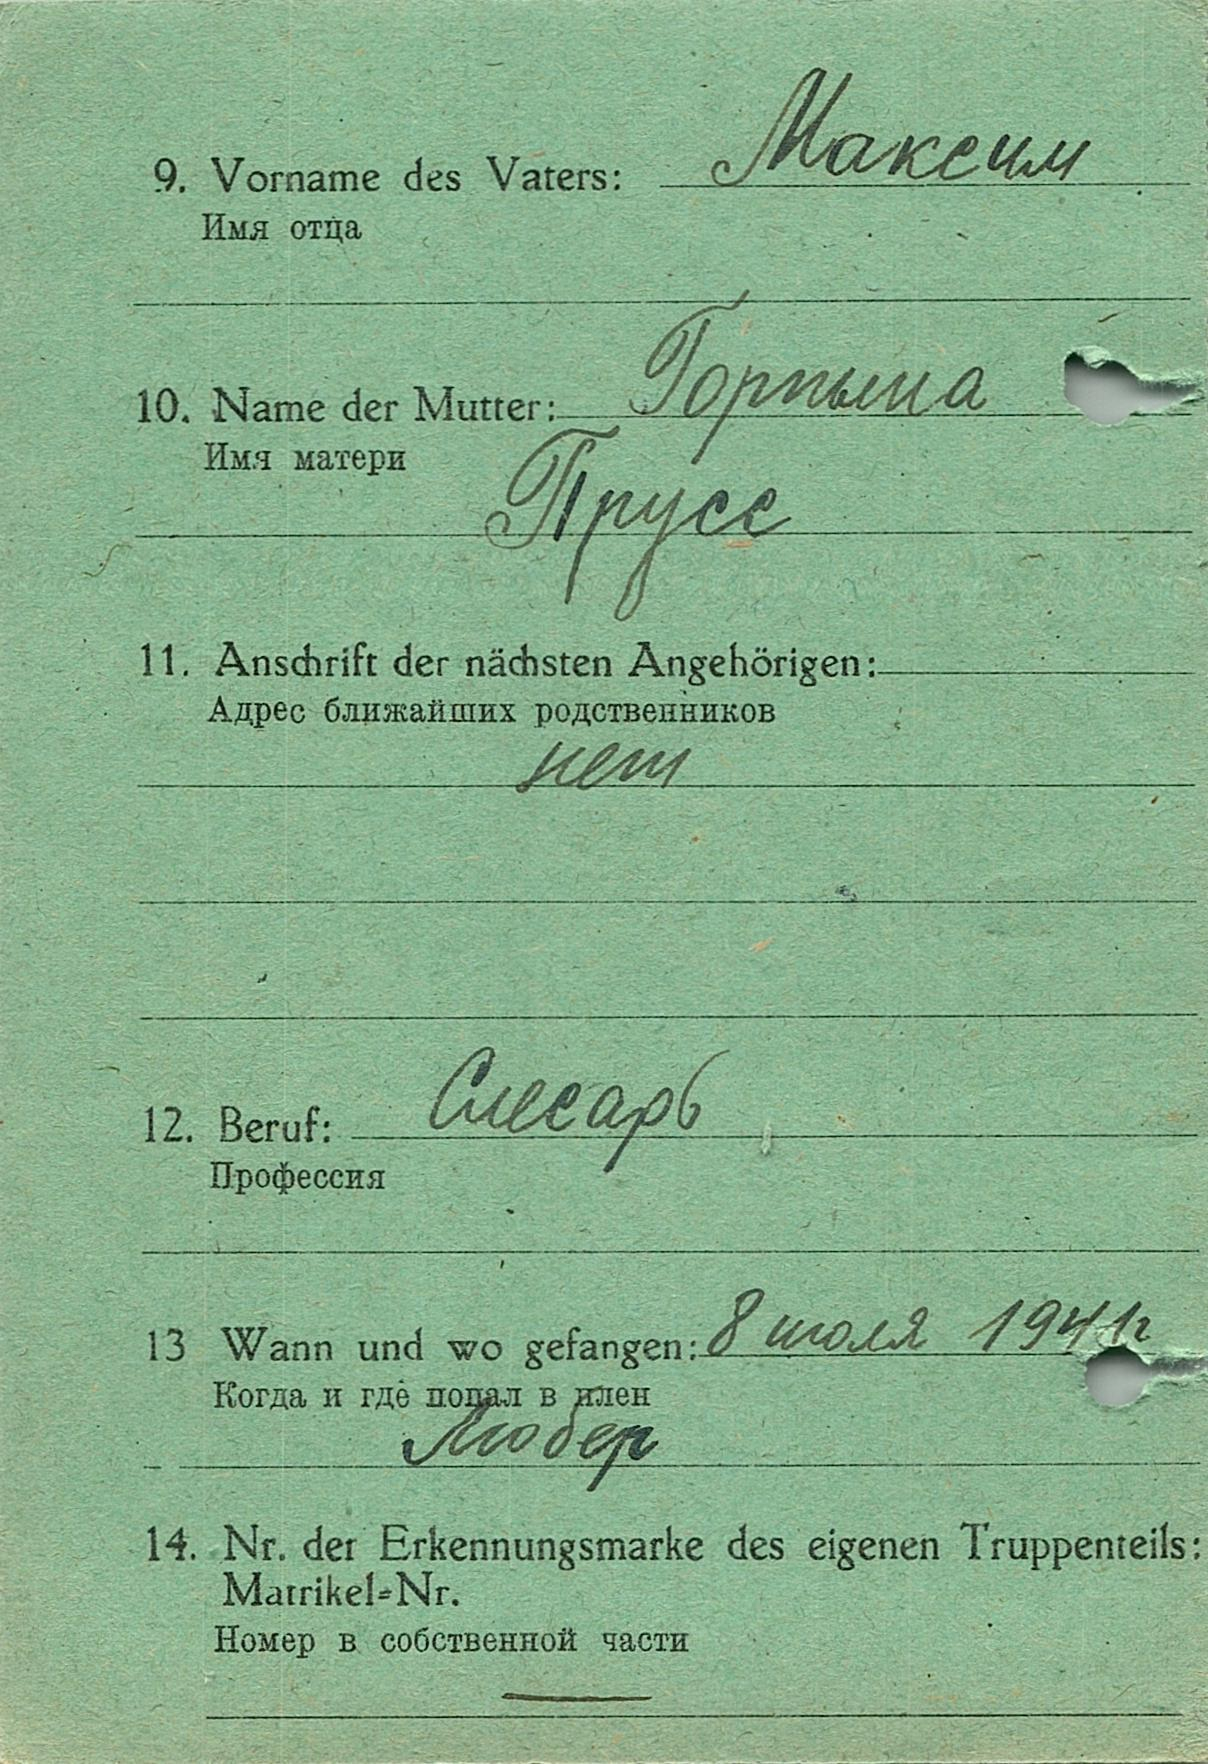 9. Vorname des Vaters: Максим
Имя отца
10. Name der Mutter: Горпына
Имя матери
Прусс
11. Anschrift der nächsten Angehörigen:
Адрес ближайших родственников
нет
12. Beruf: Слесарь
Профессия
13 Wann und wo gefangen: 8 июля 1941 г
Когда и где попал в плен
Любер
14. Nr. der Erkennungsmarke des eigenen Truppenteils:
Matrikel=Nr.
Номер в собственной части